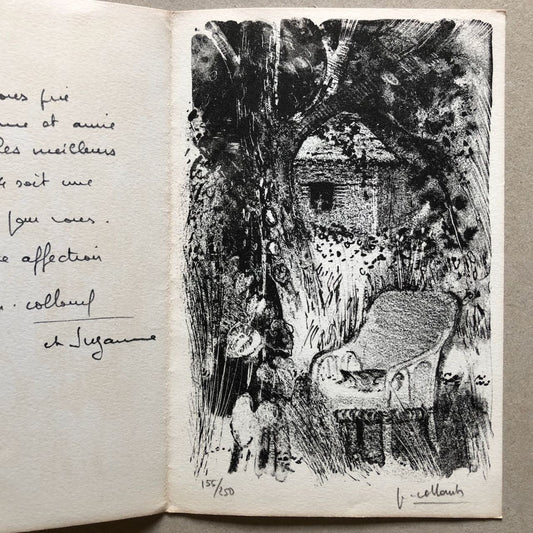 ous prie
et amie
les meilleurs
soit une
pour vous.
affection
collomb
et Suzanne
155/250
p. collomb